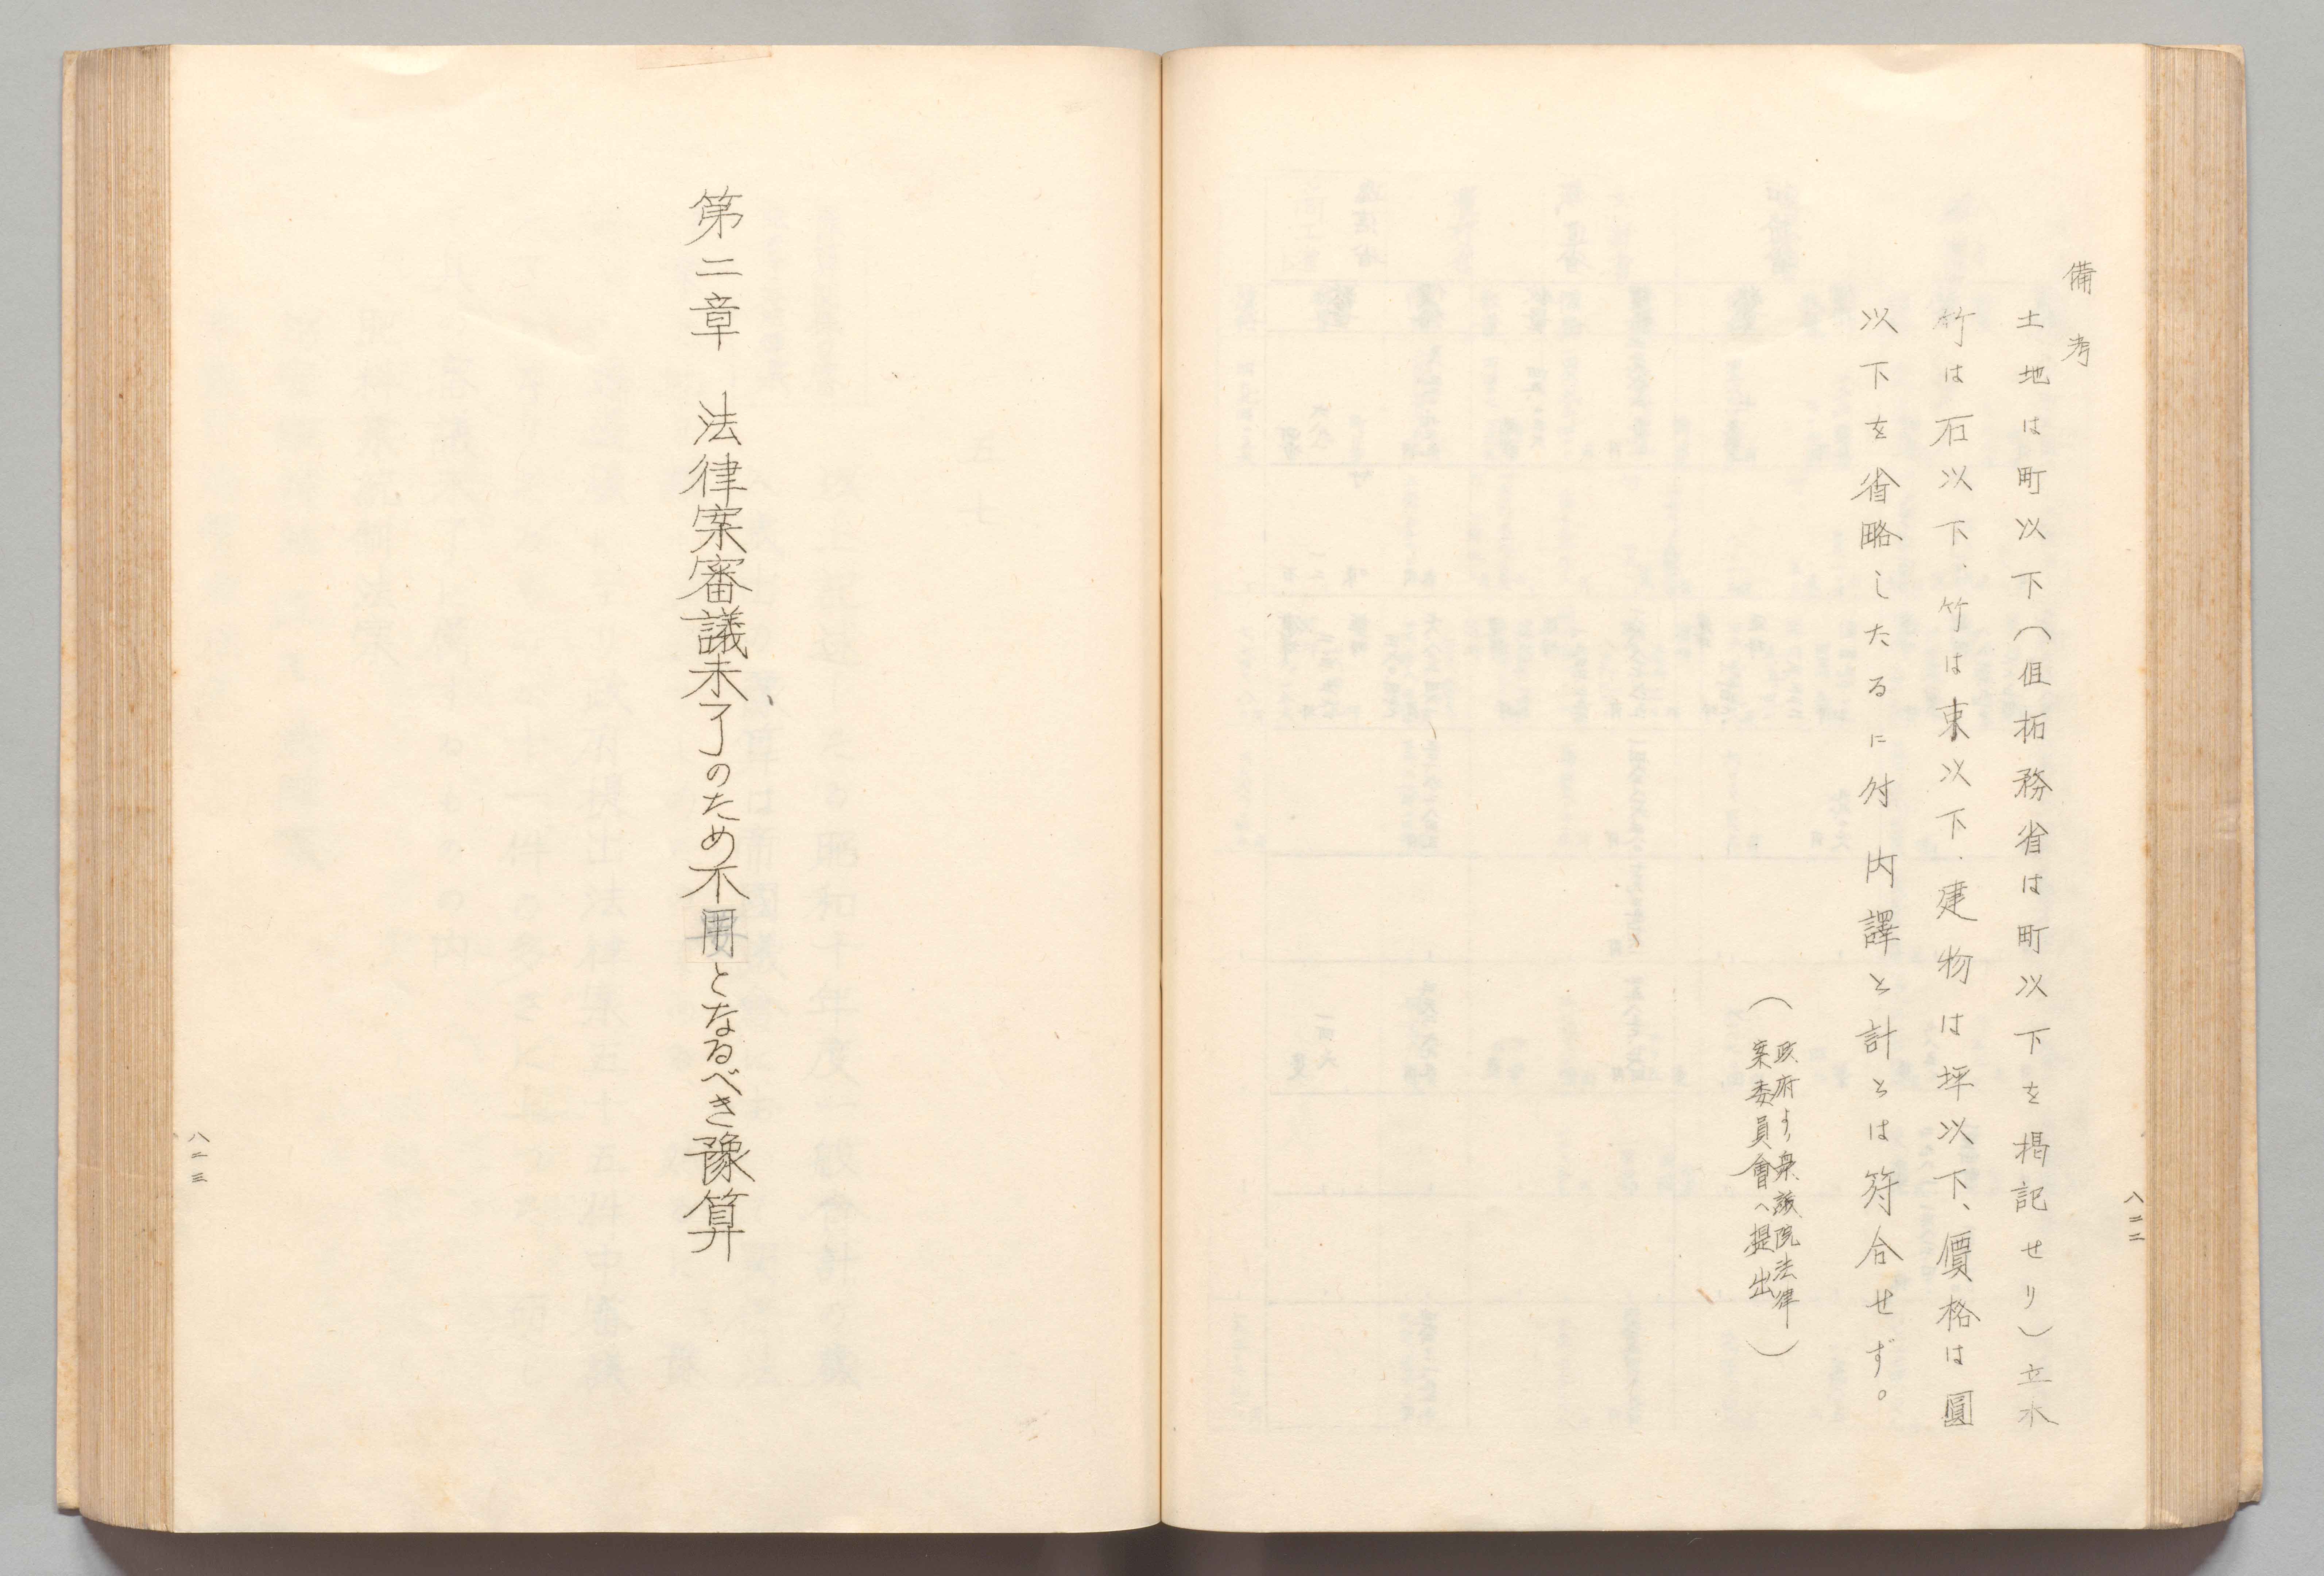 備考
土地は町以下（但拓務省は町以下を掲記せり）立木
竹は石以下、竹は束以下、建物は坪以下、價格は圓
以下を省略したるに付内譯と計とは符合せず。
（政府より衆議院法律
案委員會へ提出）
八二二
第二章　法律案審議未了のため不用となるべき豫算
八二三